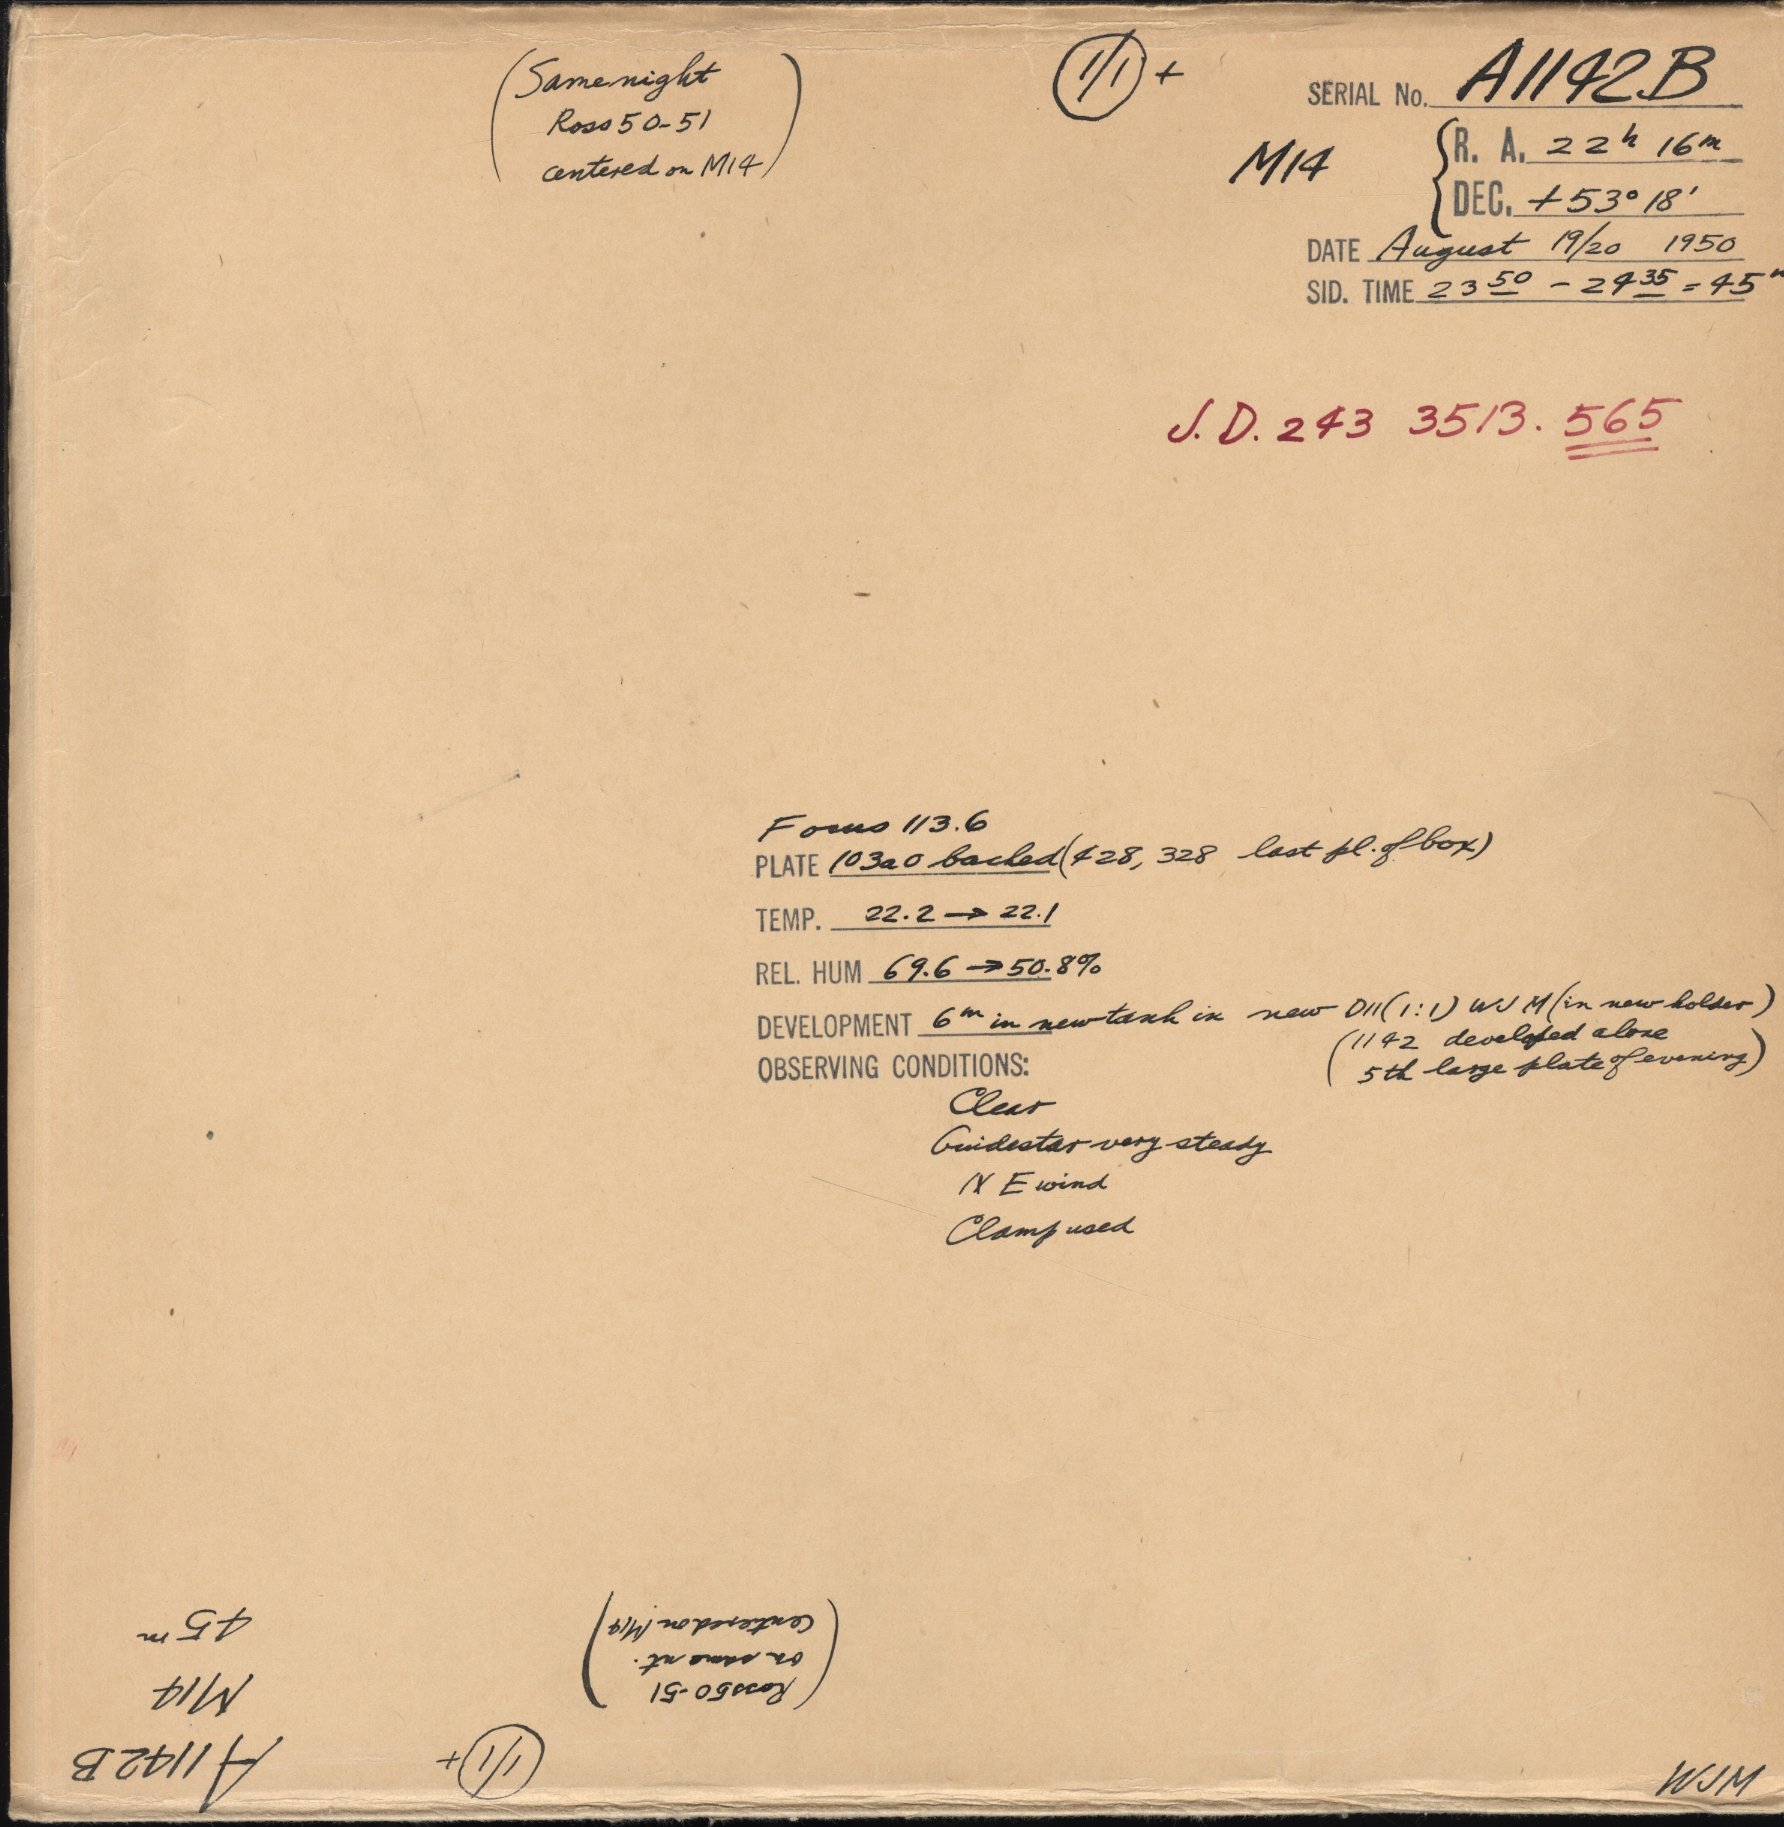 (Same night
Ross 50-51
centered on M14)
1/1 +
SERIAL No. A1142B
M14 { R. A. 22h 16m
DEC. +53° 18'
DATE August 19/20 1950
SID. TIME 23 50 - 24 35 = 45m
J.D. 243 3513.565
Focus 113.6
PLATE 103a0 backed (428, 328 last pl. of box)
TEMP. 22.2 → 22.1
REL. HUM 69.6 → 50.8%
DEVELOPMENT 6m in new tank in new D11 (1:1) WJM (in new holder)
(1142 developed alone
5th large plate of evening)
OBSERVING CONDITIONS:
Clear
Guidestar very steady
N E wind
Clamp used
WJM
A1142B
M14
45m
1/1 +
(Ross 50-51
on same nt.
Centered on M14)